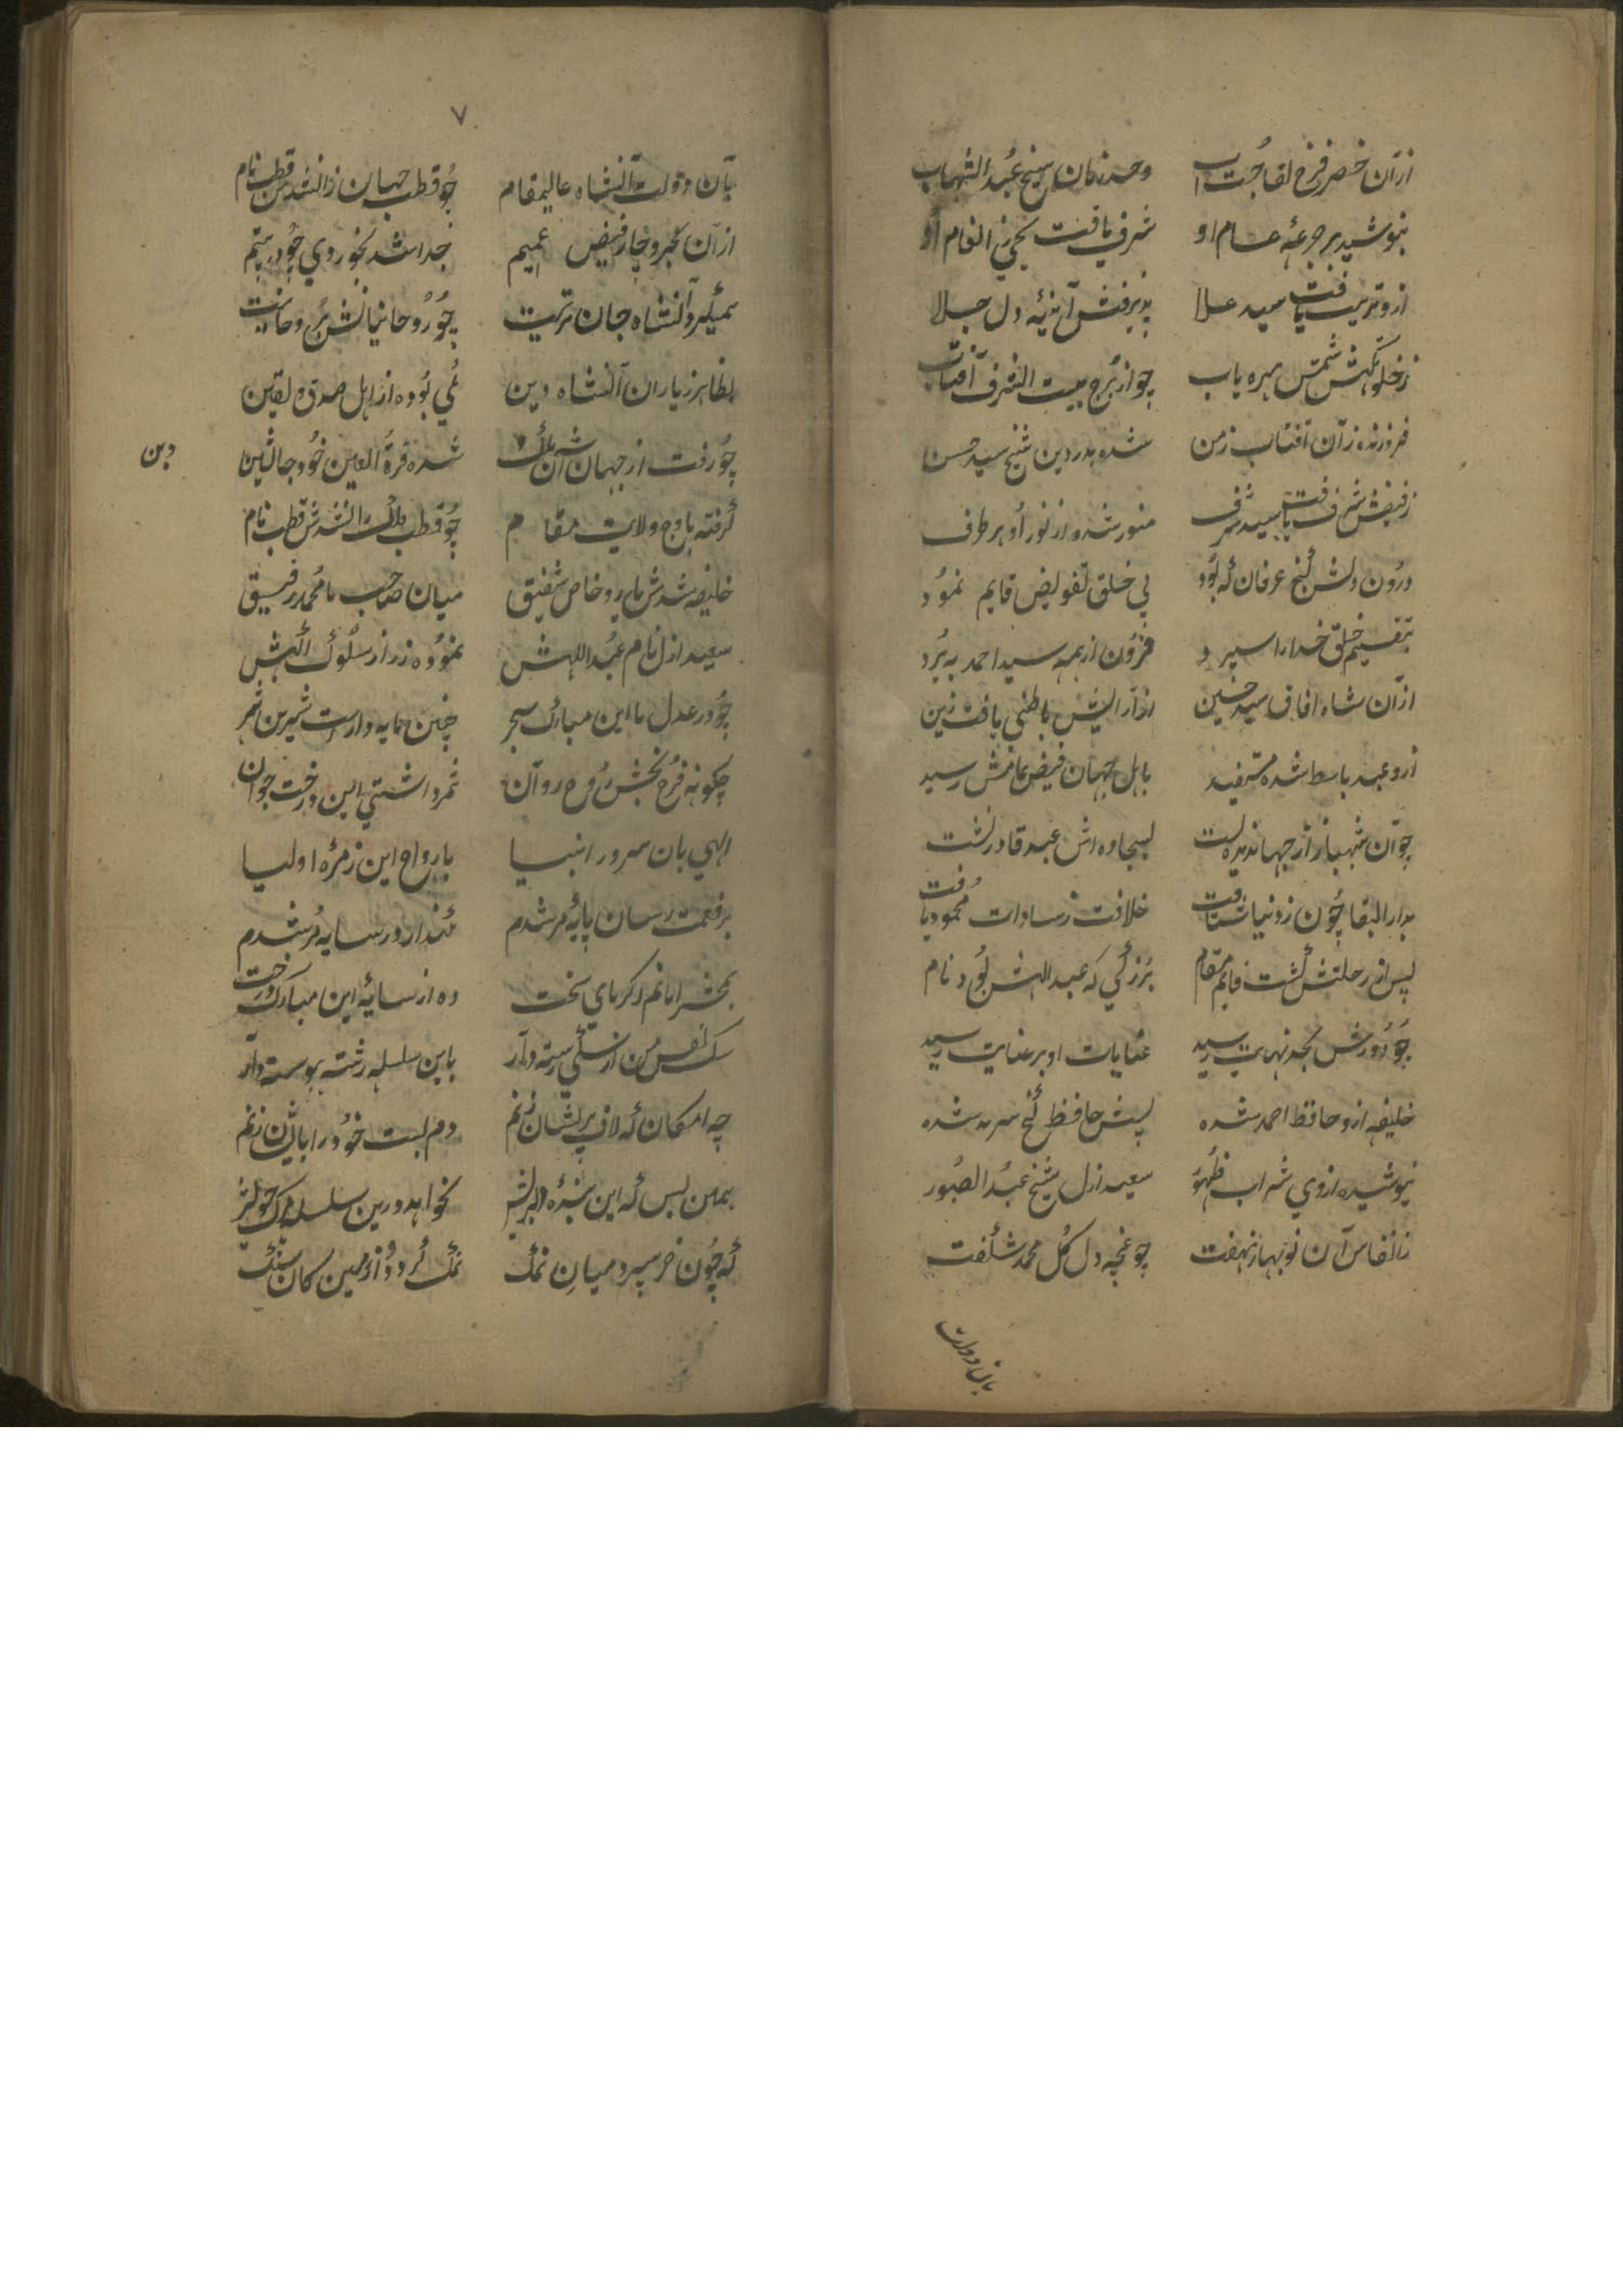 ازآن خضر فرخ لقا جست آب وحید زمان شیخ عبدالشهاب
بنوشید هر جرعهٔ جام او شرف یافت یحیی ز انعام او
ازو تربیت یافت سید علا پذیرفتش آئینهٔ دل جلا
ز خلوتگهش شمس بهره یاب چو از برج بیت الشرف آفتاب
فروزنده زآن آفتاب زمن شده بدر دین شیخ سید حسن
ز فیضش شرف یافت سید شرف منور شده از نور او هر طرف
درون دلش گنج عرفان که بود پی خلق تفویض قایم نمود
بتقسیم خلق خدا را سپرد فزون از همه سید احمد ببرد
ازآن شاه آفاق سید حسین از آرایش باطنی یافت زین
ازو عبد باسط شده مستفید باهل جهان فیض عامش رسید
چو آن شهباز از جهان دیده بست بسجاده اش عبد قادر نشست
بدار البقا چون ز دنیا شتافت خلافت ز سادات محمود یافت
پس از رحلتش گشت قایم مقام بزرگی که عبد الهش بود نام
چو دورش بحد نهایت رسید عنایات او بر عنایت رسید
خلیفه ازو حافظ احمد شده پسش حافظ گنج سرمد شده
نیوشیده از وی شراب طهور سعید ازل شیخ عبدالصبور
ز انفاس آن نوبهار نهفت چو غنچه دل گل محمد شگفت
بآن دولت
۷
بآن دولت آنشاه عالیمقام چو قطب جهان زانشدش قطب نام
ازآن بحر و خار فیض عمیم جدا شد بخوردی چو در یتیم
همیکرد آنشاه جان تربیت چو روحانیانش بروحانیت
بظاهر ز یاران آنشاه دین یکی بوده از اهل صدق و یقین
چو رفت از جهان شده قرة العین خود جانشین
دین
گرفته باوج ولایت مقام چو قطب فلک زانشدش قطب نام
خلیفه شدش یار و خاص شفیق میان صاحب ما محمد رفیق
سعید ازل نام عبداللهش نموده ز راز سلوک آگهش
چو در عدل ما این مبارک شجر چنین سایه دارست شیرین ثمر
چگونه فرح بخش روح روان ثمر داشتی این درخت جوان
الهی بآن سرور انبیا بارواح این زمرهٔ اولیا
برفعت رسان پایهٔ مرشدم نگهدار در سایه مرشدم
بحشر امانم ز گرمای سخت ده از سایهٔ این مبارک درخت
سگ نفس من از سگی رسته دار باین سلسله رشته پیوسته دار
چه امکان که لاف پریشان زنم دم نسبت خود را بایشان زنم
همین بس که این بندهٔ نخواهد درین سلسله
که چون خر سپرد میان نمک نمک گردد از بین کان نمک